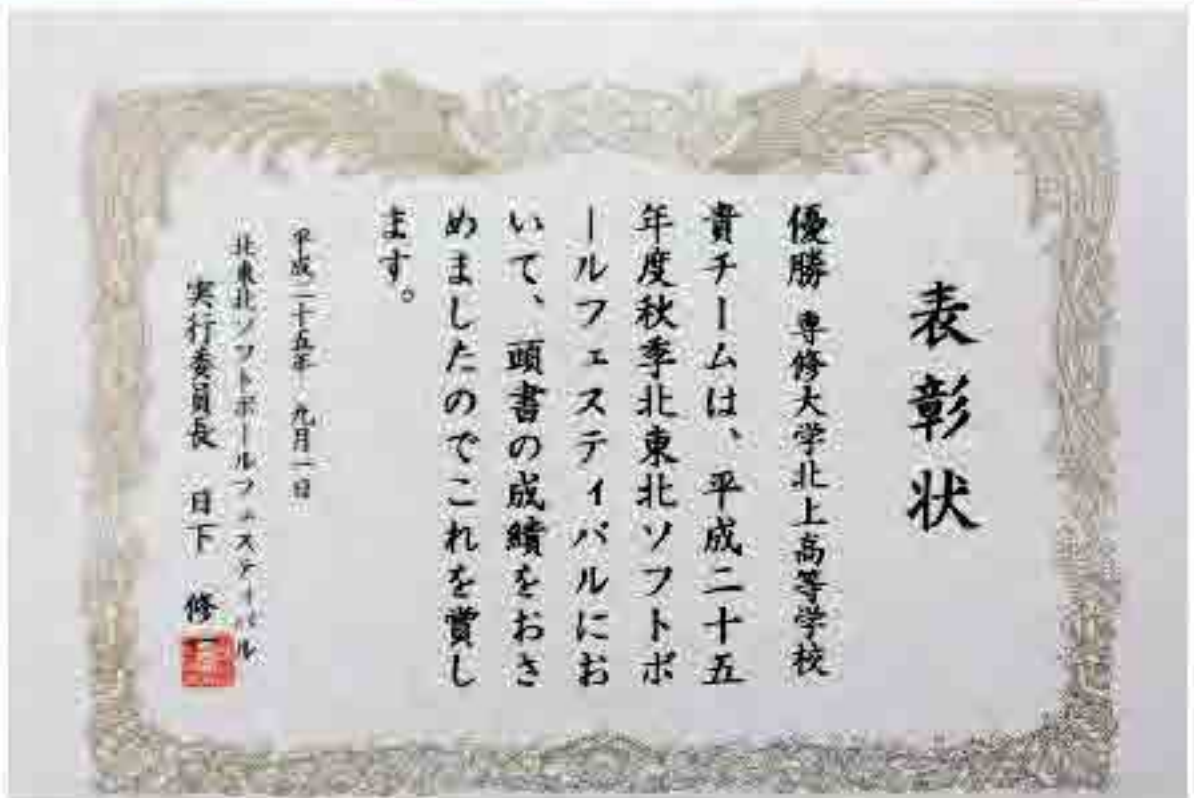 表彰状
優勝 専修大学北上高等学校
貴チームは、平成二十五
年度秋季北東北ソフトボ
ールフェスティバルにお
いて、頭書の成績をおさ
めましたのでこれを賞し
ます。
平成二十五年 九月一日
北東北ソフトボールフェスティバル
実行委員長 日下 修一